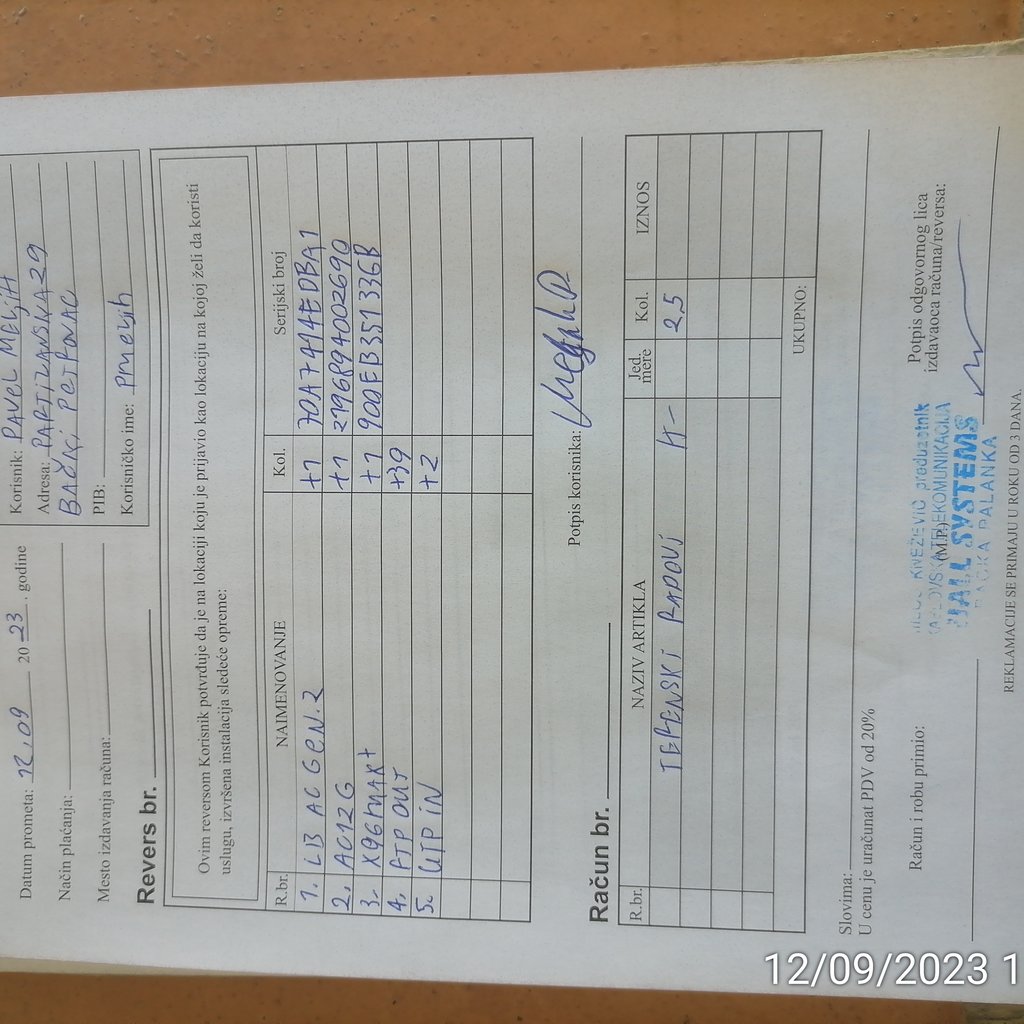 Datum prometa: 12,09 2023. godine
Način plaćanja:
Mesto izdavanja računa:
Korisnik: PAVEL MELJIH
Adresa: PARTIZANSKA 29
BAČKI PETROVAC
PIB:
Korisničko ime: pmeljih
Revers br.
Ovim reversom Korisnik potvrđuje da je na lokaciji koju je prijavio kao lokaciju na kojoj želi da koristi
uslugu, izvršena instalacija sledeće opreme:
R.br. NAIMENOVANJE Kol. Serijski broj
1. LB AC GEN.2 +1 70A7414EDBA1
2. AC12G +1 2196894002690
3. X96MAX+ +1 900EB351336B
4. FTP OUT +39
5. UTP IN +2
Potpis korisnika:
Račun br.
R.br. NAZIV ARTIKLA Jed. mere Kol. IZNOS
TERENSKI RADOVI H- 2,5
UKUPNO:
Slovima:
U cenu je uračunat PDV od 20%
Račun i robu primio:
(M.P.)
Potpis odgovornog lica
izdavaoca računa/reversa:
KNEŽEVIĆ preduzetnik
TELEKOMUNIKACIJA
SYSTEMS
BAČKA PALANKA
REKLAMACIJE SE PRIMAJU U ROKU OD 3 DANA.
12/09/2023 1